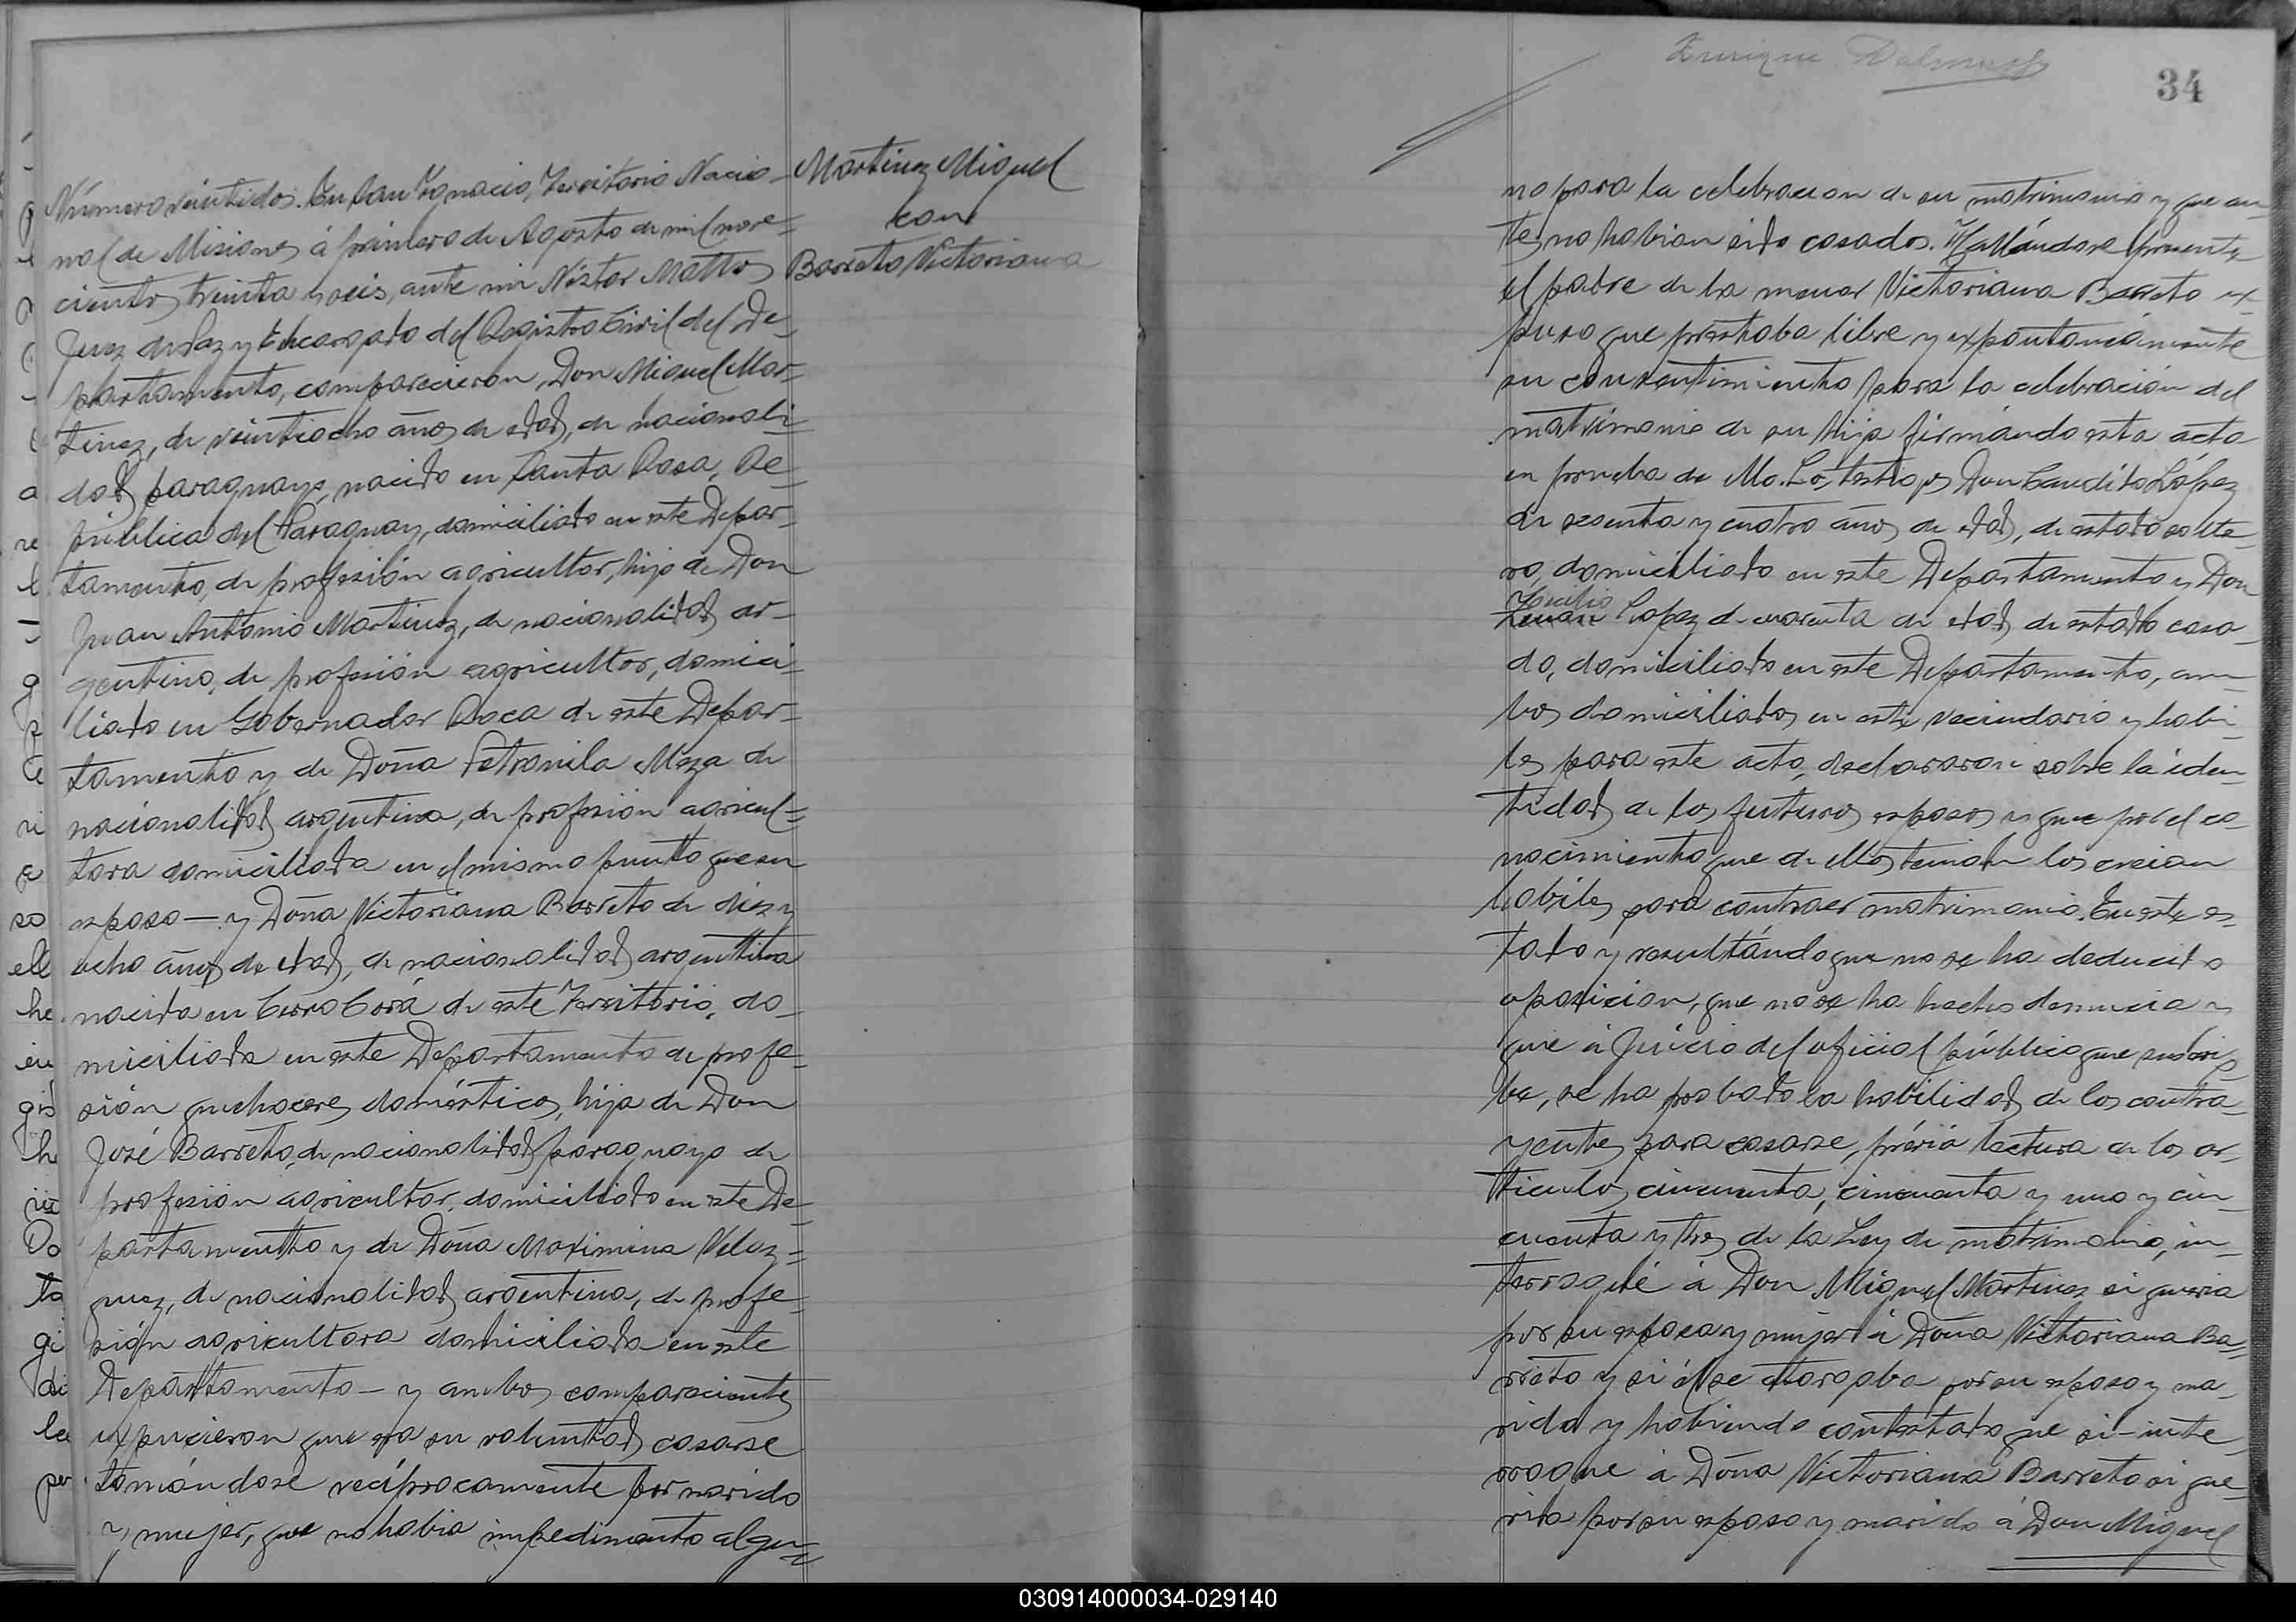 Número veintidos. En San Ignacio, Territorio Nacio-
nal de Misiones á primero de Agosto de mil nove-
cientos treinta y seis, ante mi Néstor Mattos
Juez de Paz y Encargado del Registro Civil del De-
partamento, comparecieron, Don Miguel Mar-
tinez, de veintiocho años de edad, de nacionali-
dad paraguayo, nacido en Santa Rosa, Re-
pública del Paraguay, domiciliado en este Depar-
tamento, de profesión agricultor, hijo de Don
Juan Antonio Martinez, de nacionalidad ar-
gentino, de profesión agricultor, domici-
liado en Gobernador Roca de este Depar-
tamento y de Doña Petronila Meza de
nacionalidad argentina, de profesión agricul-
tora domiciliada en el mismo punto que su
esposo — y Doña Victoriana Barreto de diez y
ocho años de edad, de nacionalidad argentina
nacida en Cerro Corá de este Territorio, do-
miciliada en este Departamento de profe-
sión quehaceres domésticos, hija de Don
José Barreto, de nacionalidad paraguayo de
profesion agricultor, domiciliado en este De-
partamento y de Doña Maximina Velaz-
quez, de nacionalidad argentina, de profe-
sión agricultora domiciliada en este
Departamento — y ambos comparecientes
expucieron que era su voluntad casarse
tomándose recíprocamente por marido
y mujer, que no habia impedimento algu-
Martinez Miguel
con
Barreto Victoriana
Enrique
34
no para la celebracion de su matrimonio y que an-
tes no habian sido casados. Hallándose presente
el padre de la menor Victoriana Barreto ex-
puso que prestaba libre y expontaneamente
su consentimiento para la celebración del
matrimonio de su hija firmándo esta acta
en prueba de ello. Los testigos Don Candido López
de sesenta y cuatro años de edad, de estado solte-
ro, domiciliado en este Departamento y Don
Lopez de cuarenta de edad de estado casa-
do, domiciliado en este Departamento, am-
bos domiciliados en este vecindario y habi-
les para este acto, declararon sobre la iden-
tidad de los futuros esposos y que por el co-
nocimiento que de ellos tenian los creian
habiles para contraer matrimonio. En este es-
tado y resultándo que no se ha deducido
oposicion, que no se ha hecho denuncia y
que á juicio del oficial público que suscri-
be, se ha probado la habilidad de los contra-
yentes para casarse, prévia lectura de los ar-
ticulos cincuenta, cincuenta y uno y cin-
cuenta y tres de la Ley de matrimonio, in-
terrogué á Don Miguel Martinez si queria
por su esposa y mujer á Doña Victoriana Ba-
rreto y si él se otorgaba por su esposo y ma-
rido y habiendo contestado que si — inte-
rrogue á Doña Victoriana Barreto si que-
ria por su esposo y marido á Don Miguel
030914000034-029140